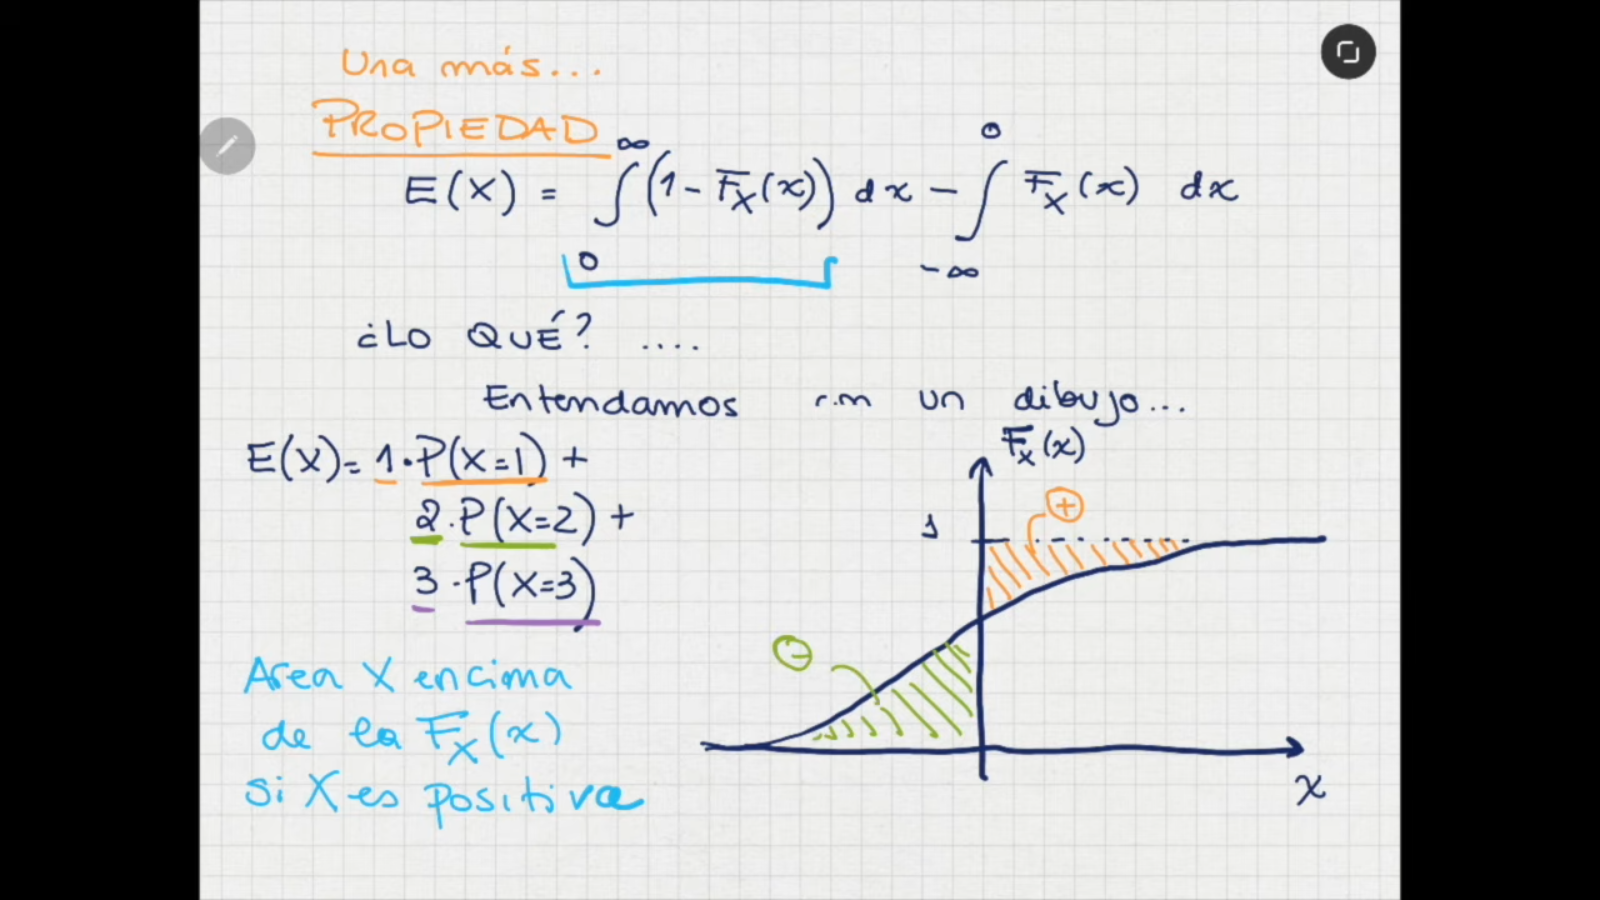 Una más...
PROPIEDAD
E(X) = ∫₀^∞ (1 - F_X(x)) dx - ∫_{-∞}^0 F_X(x) dx
¿LO QUÉ? ....
Entendamos un dibujo...
E(X) = 1·P(X=1) +
2·P(X=2) +
3·P(X=3)
Area X encima
de la F_X(x)
si X es positiva
F_X(x)
1
+
-
x